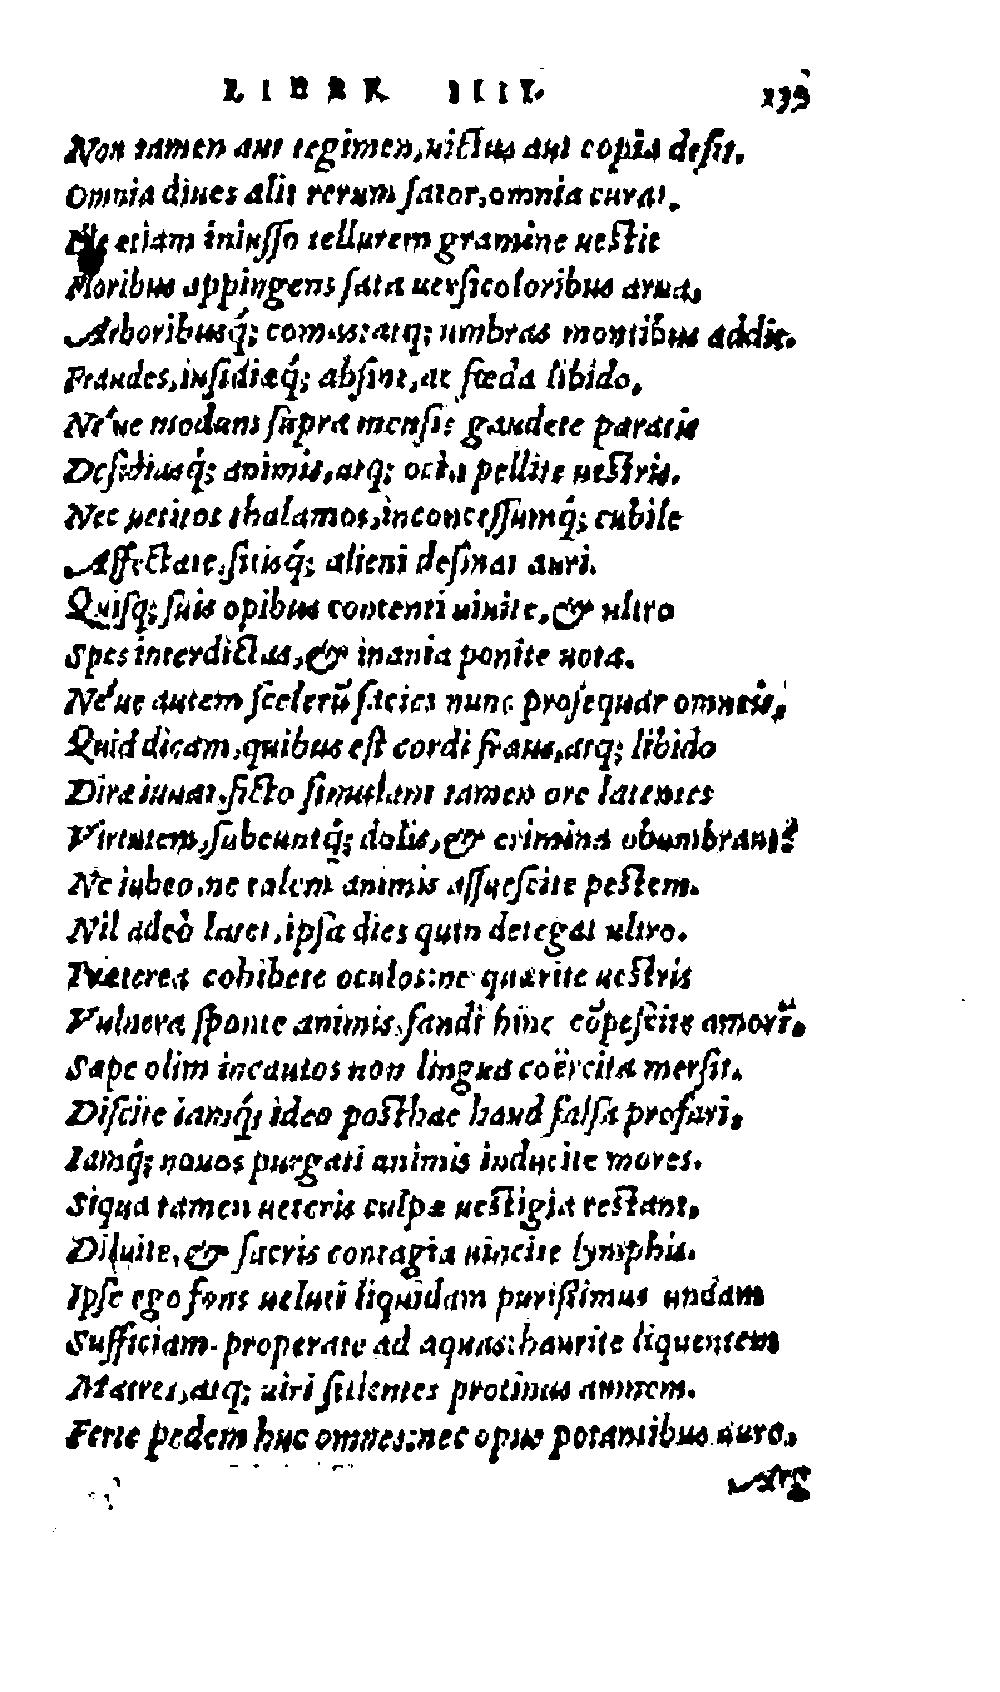 LIBER IIII. 139
Non tamen aut tegimen, uictus aut copia desit,
Omnia diues alit rerum sator, omnia curat.
Ille etiam iniusso tellurem gramine uestit
Floribus appingens sata uersicoloribus arua,
Arboribusq́; comas: atq; umbras montibus addit.
Fraudes, insidiæq́; absint, ac fœda libido,
Néue modum supra mensis gaudete paratis
Desidiasq́; animis, atq; ocia pellite uestris.
Nec uetitos thalamos, inconcessumq́; cubile
Affectate, sitisq́; alieni desinat auri.
Quisq; suis opibus contenti uiuite, & ultro
Spes interdictas, & inania ponite uota.
Néue autem scelerū facies nunc prosequar omneis,
Quid dicam, quibus est cordi fraus, atq; libido
Dira iuuat, ficto simulant tamen ore latentes
Virtutem, subeuntq́; dolis, & crimina obumbrant?
Ne iubeo, ne talem animis assuescite pestem.
Nil adeò latet, ipsa dies quin detegat ultro.
Præterea cohibete oculos: ne quærite uestris
Vulnera sponte animis, fandi hinc cōpescite amorē.
Sæpe olim incautos non lingua coërcita mersit.
Discite iamq́; ideo posthac haud falsa profari,
Iamq́; nouos purgati animis inducite mores.
Siqua tamen ueteris culpæ uestigia restant,
Diluite, & sacris contagia uincite lymphis.
Ipse ego fons ueluti liquidam purissimus undam
Sufficiam. properate ad aquas: haurite liquentem
Matres, atq; uiri sitientes protinus amnem.
Ferte pedem huc omnes: nec opus potantibus auro,
Arg